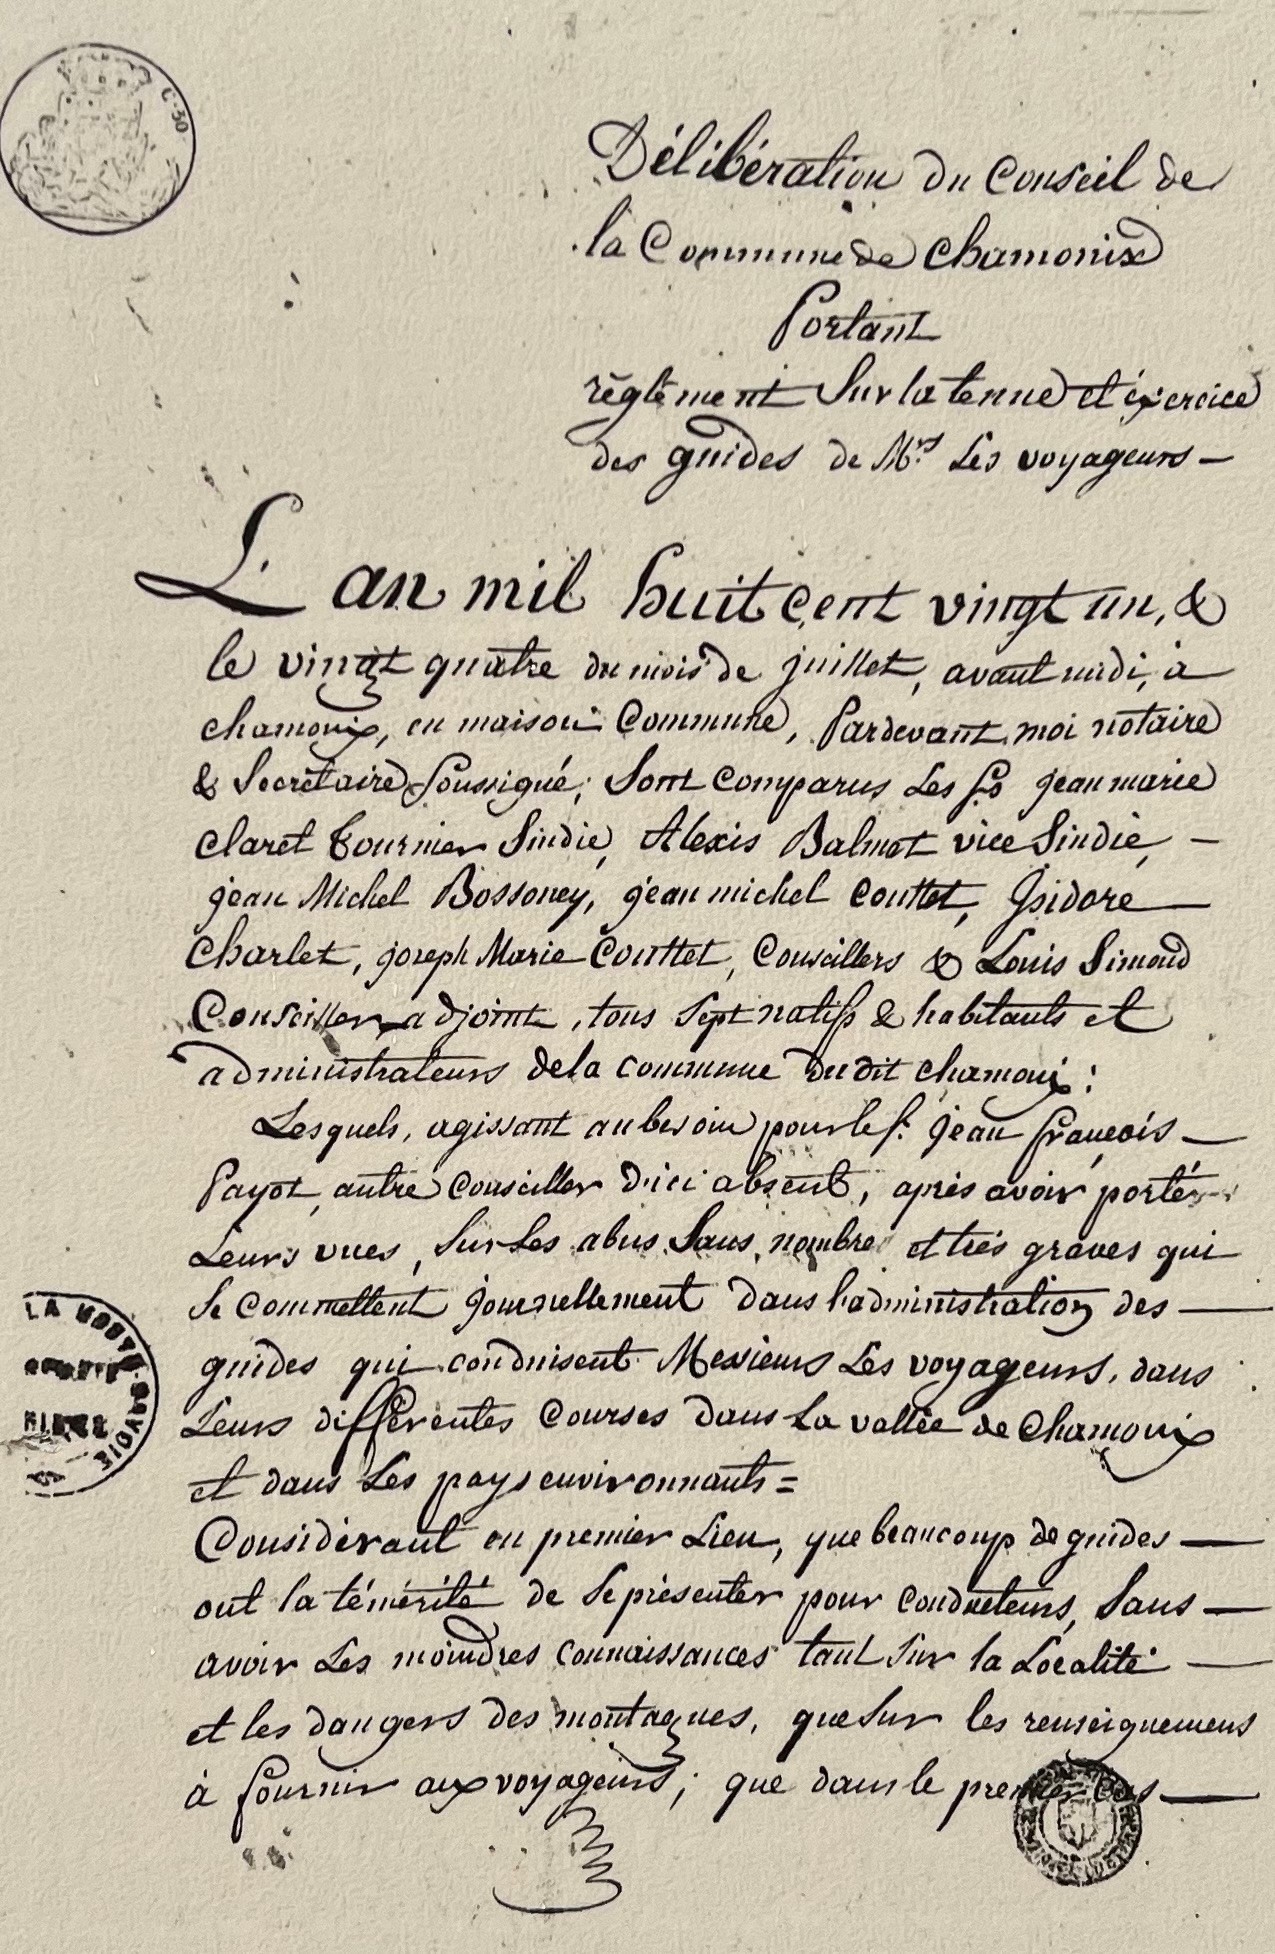 C. 30
Délibération du Conseil de
la Commune de Chamonix
Portant
règlement Sur la tenue et éxercice
des guides de Mrs. Les voyageurs —
L'an mil huit cent vingt un, &
le vingt quatre du mois de juillet, avant midi, à
chamonix, en maison Commune, Pardevant moi notaire
& Secrétaire Soussigné; Sont comparus Les Srs jean marie
Claret Tournier Sindic, Alexis Balmat vice Sindic, —
jean Michel Bossoney, jean michel Couttet, Isidore —
Charlet, joseph Marie Couttet, Conseillers & Louis Simond
Conseiller adjoint, tous Sept natifs & habitants et
administrateurs de la commune du dit chamonix:
Lesquels, agissant au besoin pour le Sr. jean françois —
Payot, autre Conseiller d'ici absent, après avoir porté
Leurs vues, Sur Les abus Sans nombre et très graves qui
Se Commettent journellement dans l'administration des —
guides qui conduisent Messieurs Les voyageurs, dans
Leurs différentes Courses dans La vallée de Chamonix
et dans Les pays environnants =
Considérant en premier Lieu, que beaucoup de guides —
ont la témérité de Se présenter pour Conducteurs, Sans —
avoir Les moindres connaissances tant Sur la Localité —
et les dangers des montagnes, que Sur les renseignemens
à fournir aux voyageurs; que dans le premier Cas —